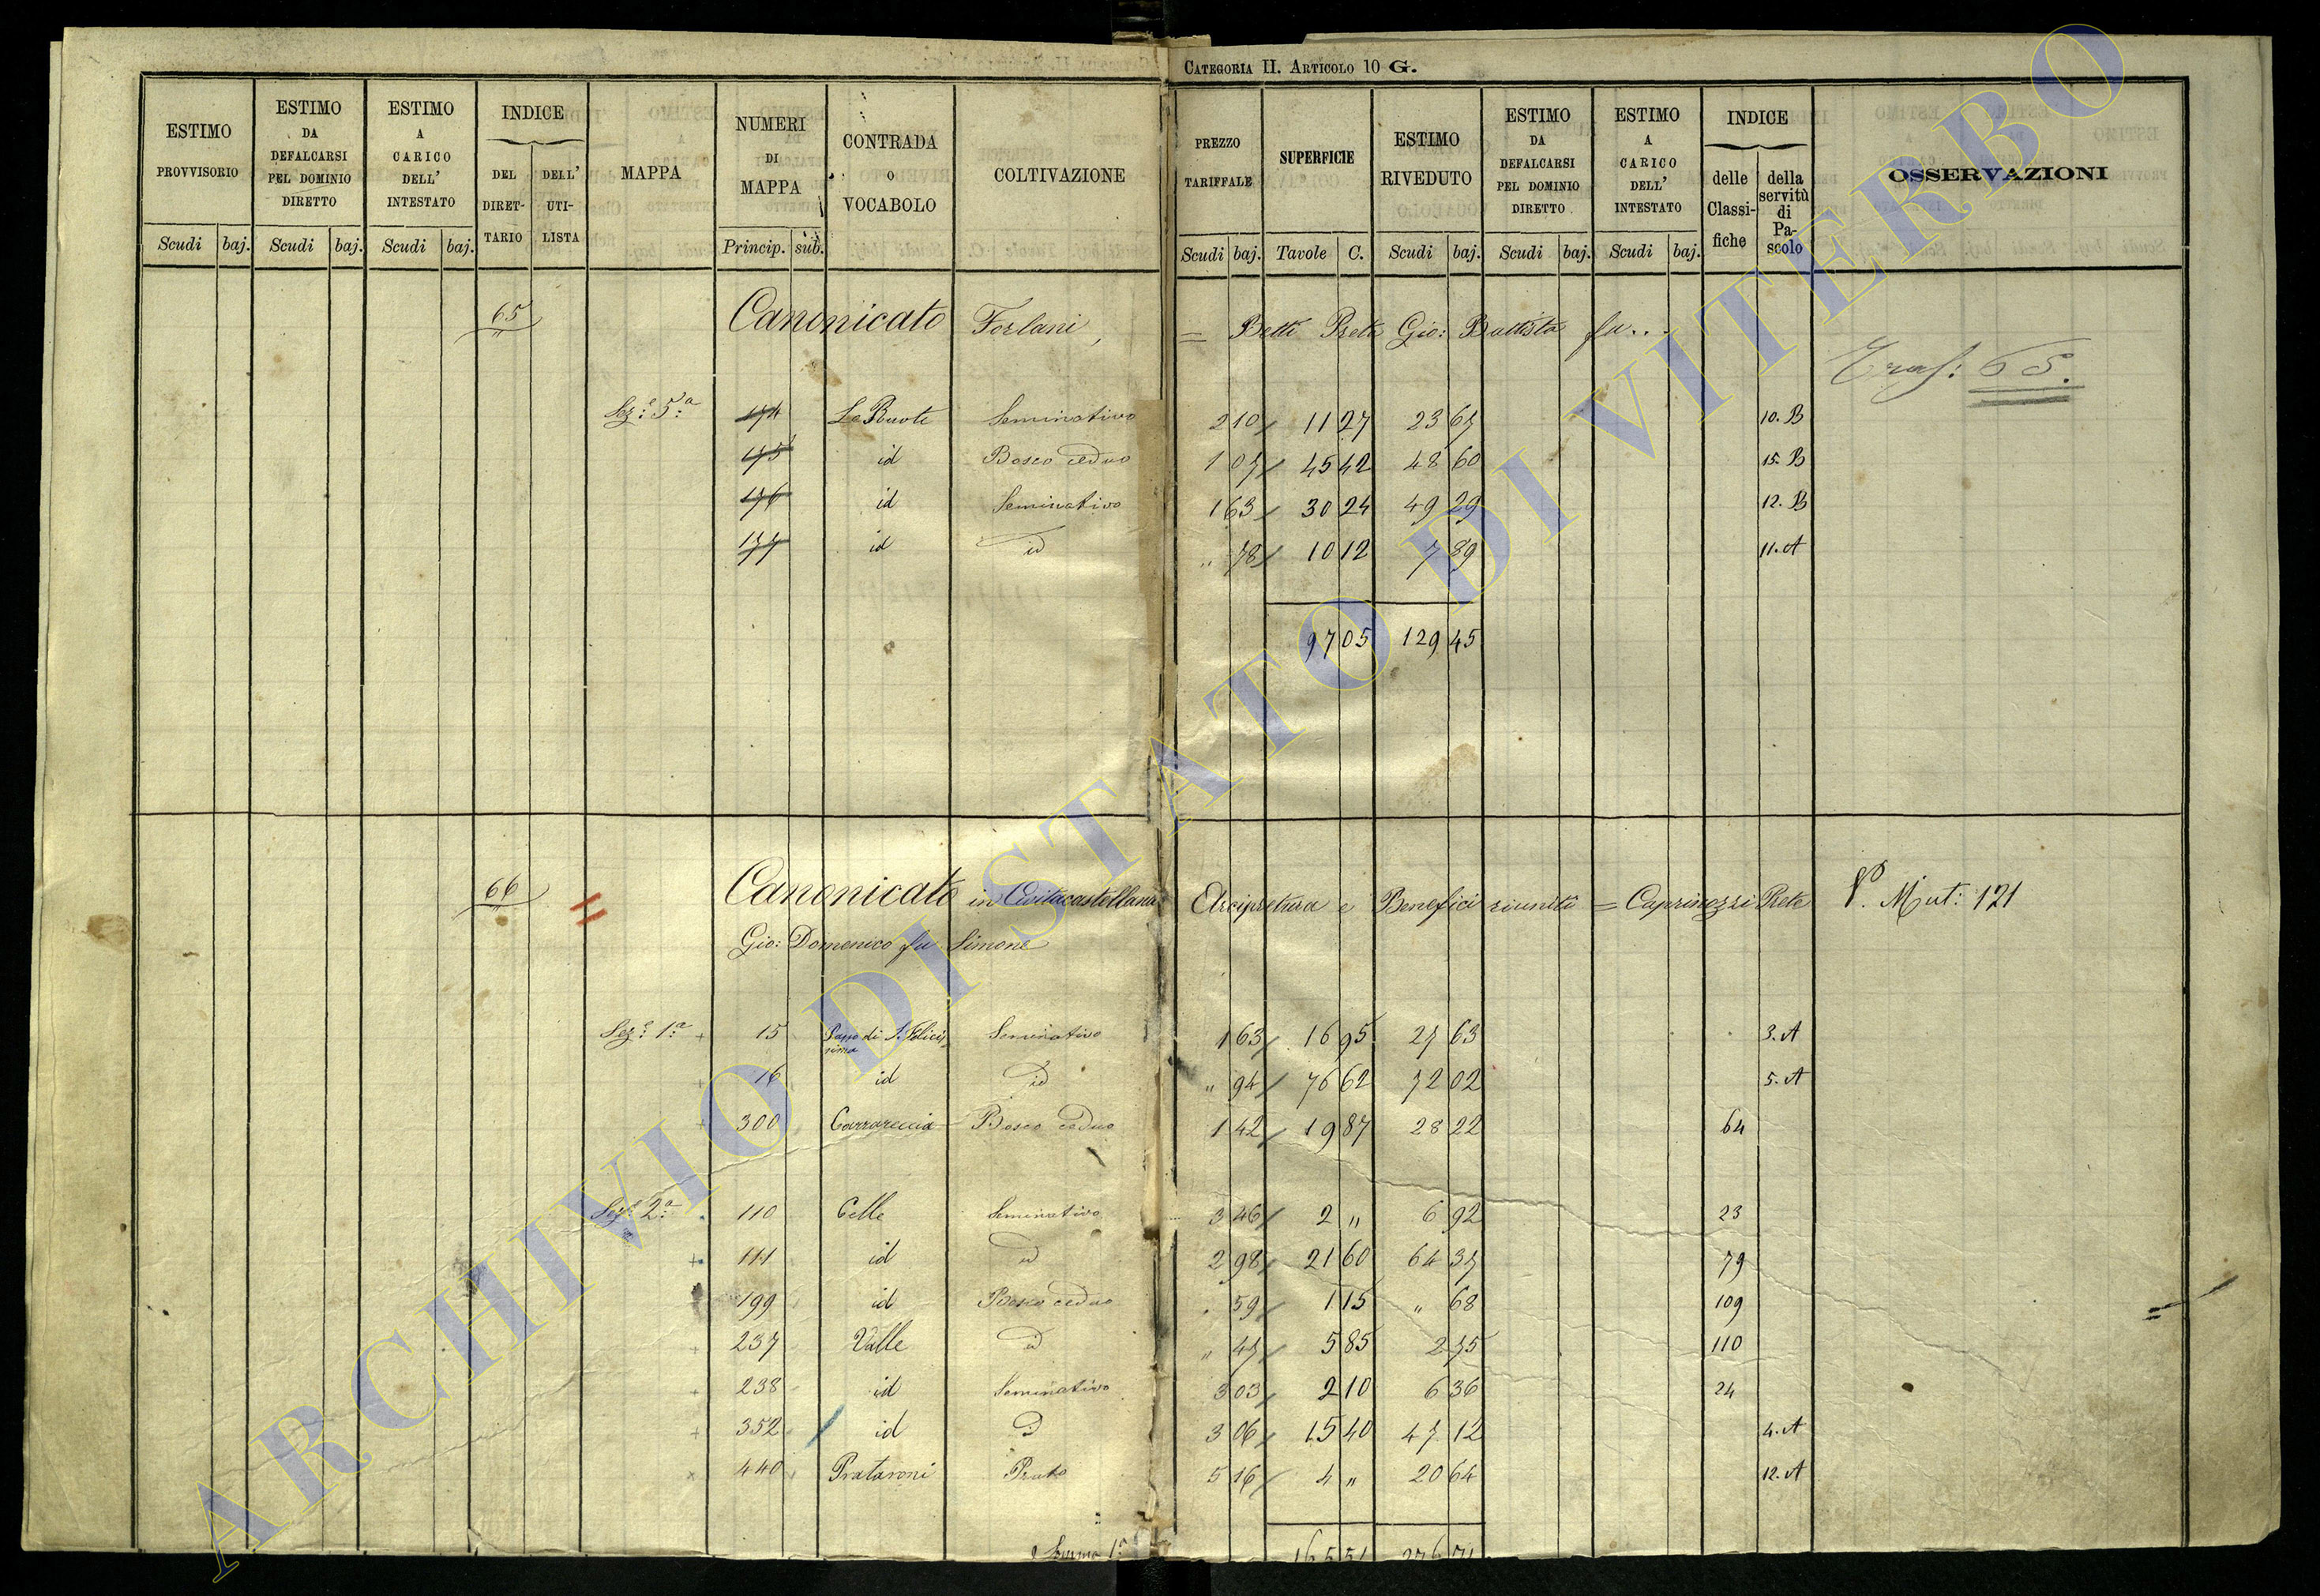 CATEGORIA II. ARTICOLO 10 G.
ESTIMO PROVVISORIO
ESTIMO DA DEFALCARSI PEL DOMINIO DIRETTO
ESTIMO A CARICO DELL' INTESTATO
INDICE
DEL DIRETTARIO
DELL' UTILISTA
MAPPA
NUMERI DI MAPPA
CONTRADA O VOCABOLO
COLTIVAZIONE
PREZZO TARIFFALE
SUPERFICIE
ESTIMO RIVEDUTO
ESTIMO DA DEFALCARSI PEL DOMINIO DIRETTO
ESTIMO A CARICO DELL' INTESTATO
INDICE
delle Classifiche
della servitù di Pascolo
OSSERVAZIONI
Scudi baj. Scudi baj. Scudi baj. Princip. sub. Scudi baj. Tavole C. Scudi baj. Scudi baj. Scudi baj.
65 Canonicato Forlani, = Betti Prete Gio: Battista fu...
Traf: 65.
Sez.e 5.a 174 Le Ruote Seminativo 2 10 11 27 23 67 10. B
175 id Bosco ceduo 1 07 45 42 48 60 15. B
176 id Seminativo 1 63 30 24 49 29 12. B
177 id id " 78 10 12 7 89 11. A
97 05 129 45
66 = Canonicato in Civitacastellana Arcipretura e Benefici riuniti = Caprinozzi Prete V. Mut: 121
Gio: Domenico fu Simone
Sez.e 1.a + 15 Passo di S. Felicissima Seminativo 1 63 16 95 27 63 3. A
+ 16 id id " 94 76 62 72 02 5. A
+ 300 Carrareccia Bosco ceduo 1 42 19 87 28 22 64
Sez.e 2.a 110 Celle Seminativo 3 46 2 " 6 92 23
+ 111 id id 2 98 21 60 64 37 79
199 id Bosco ceduo " 59 1 15 " 68 109
+ 237 Valle id " 47 5 85 2 75 110
+ 238 id Seminativo 3 03 2 10 6 36 24
+ 352 id id 3 06 15 40 47 12 4. A
x 440 Prataroni Prato 5 16 4 " 20 64 12. A
Somma 1.a 165 51 276 71
ARCHIVIO DI STATO DI VITERBO